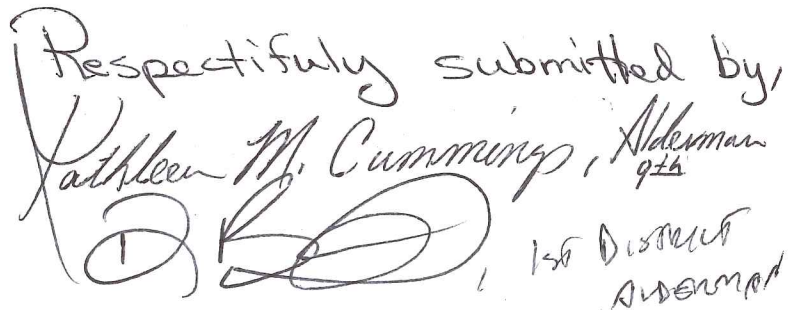 Respectifuly submitted by,
Kathleen M. Cummings, Alderman
9th
1st DISTRICT
ALDERMAN